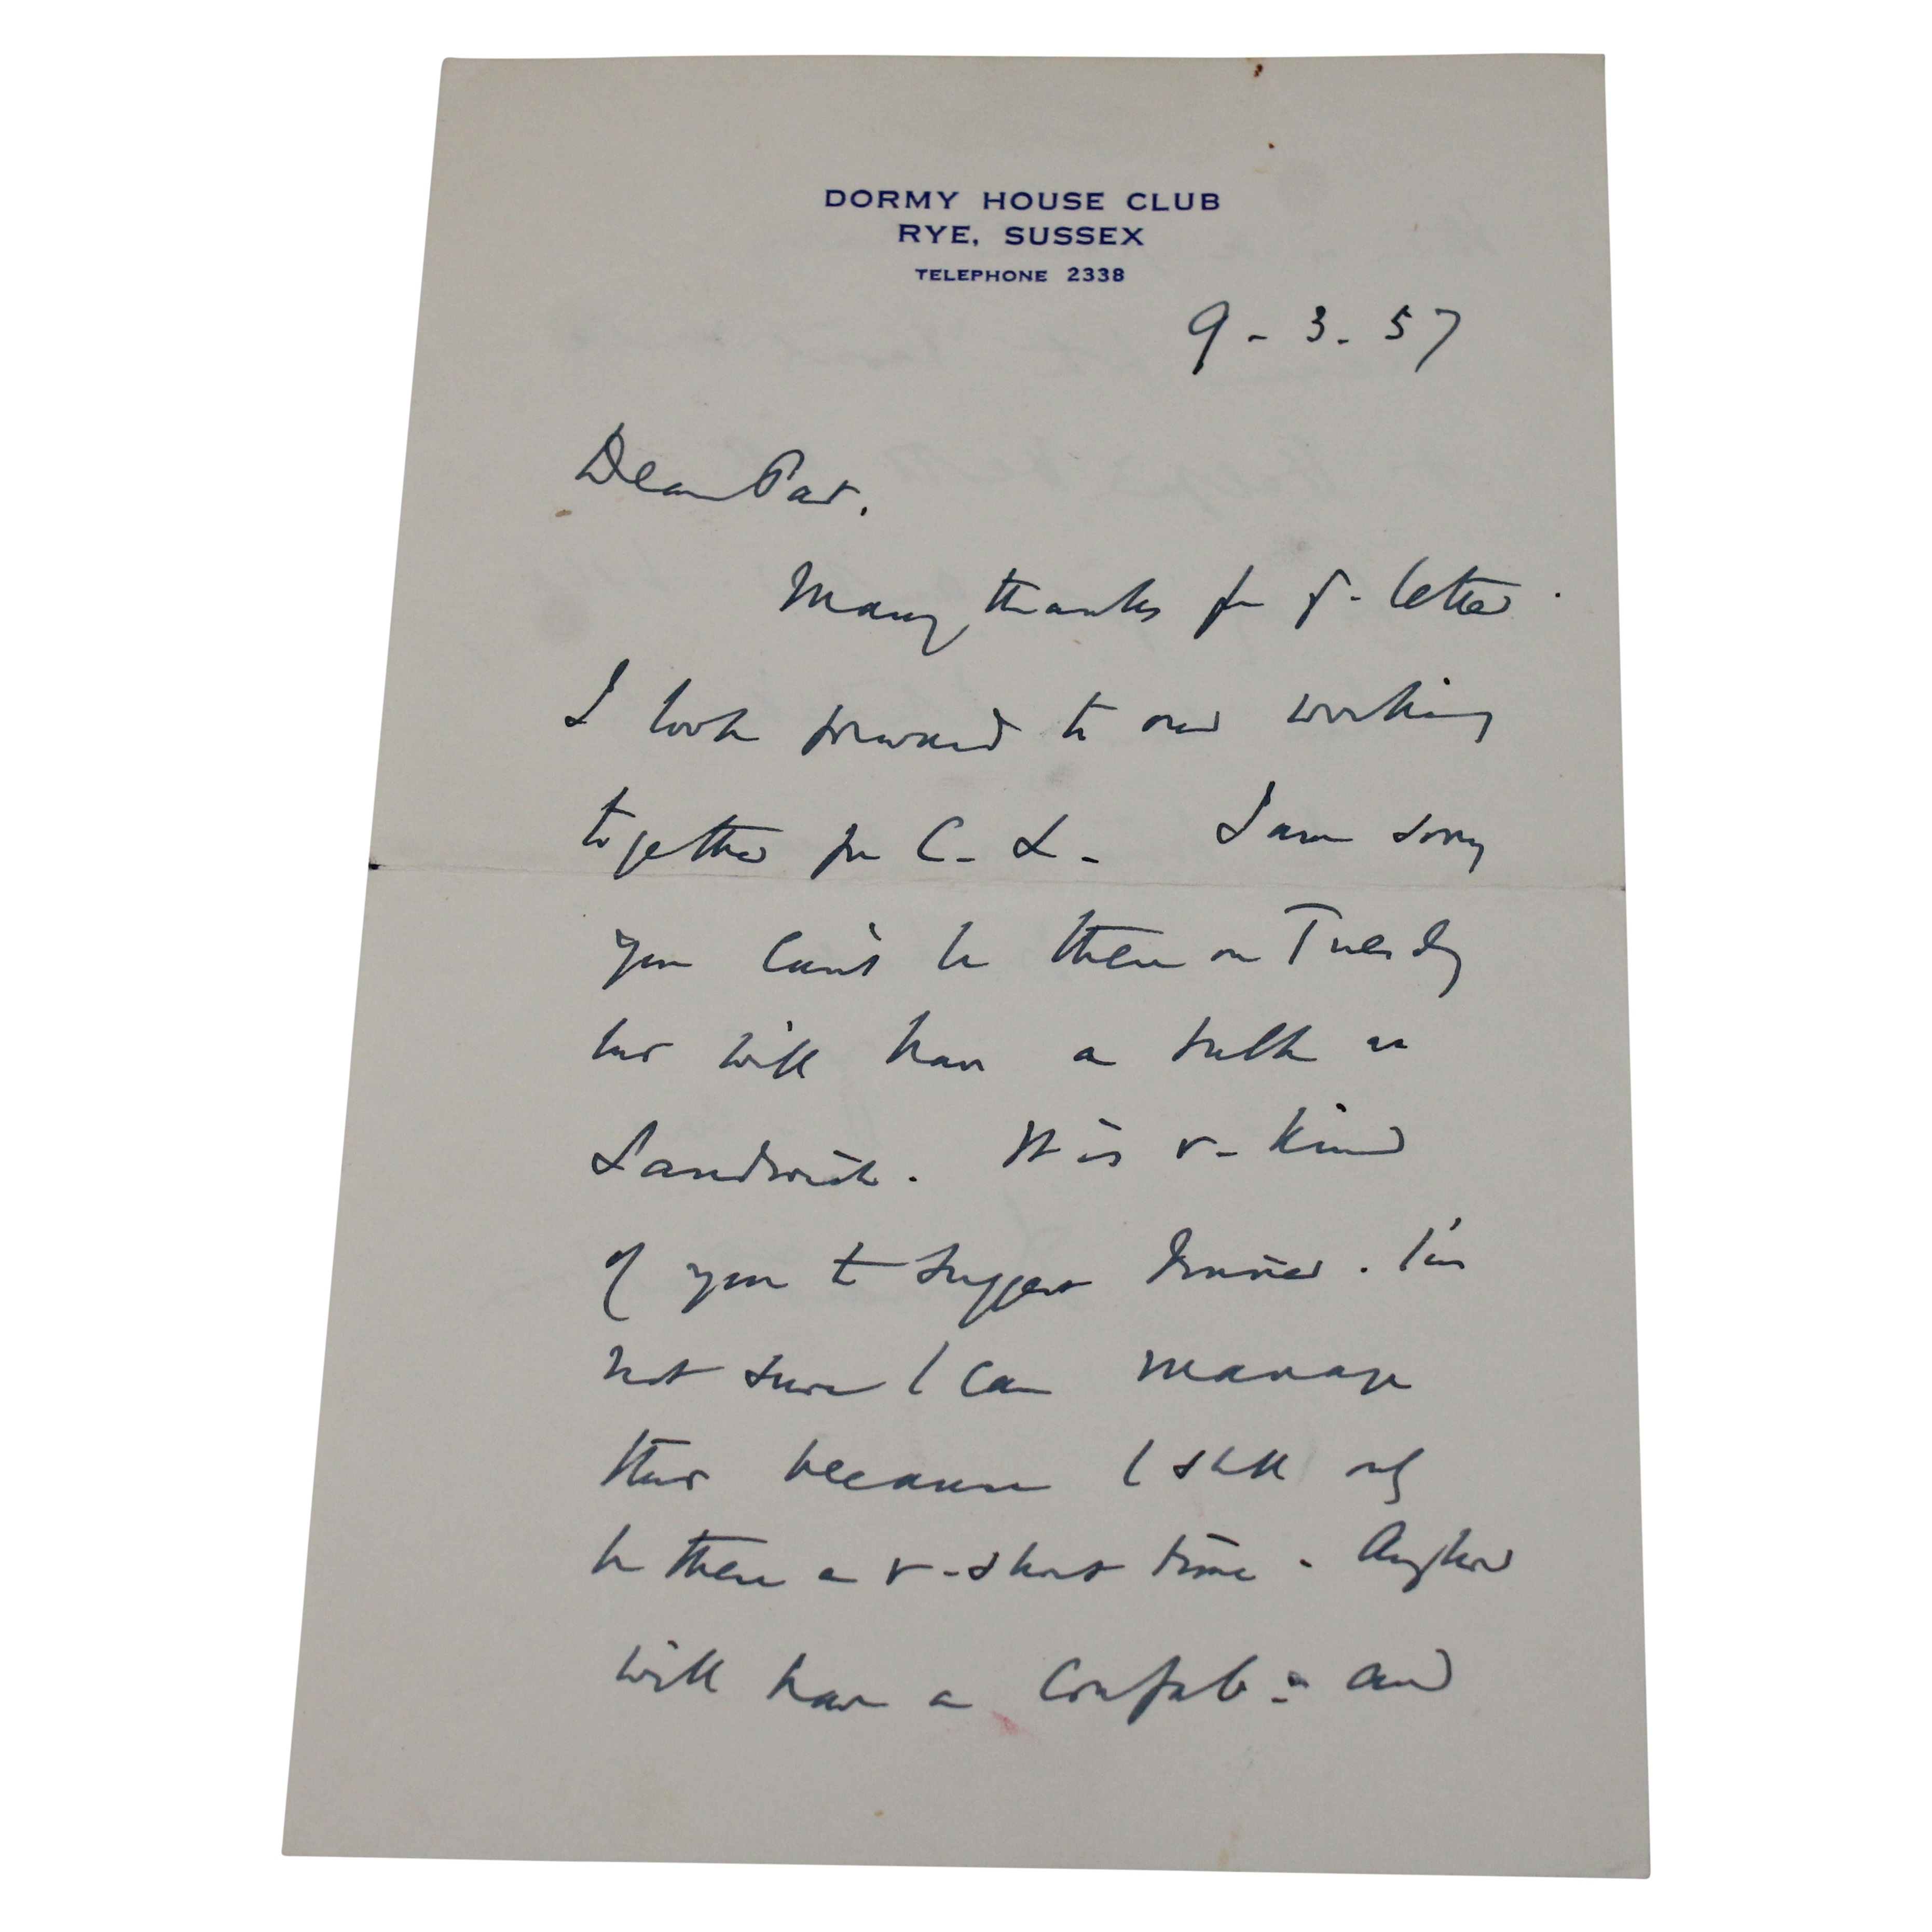 DORMY HOUSE CLUB
RYE, SUSSEX
TELEPHONE 2338
9-3-57
Dear Pat,
Many thanks for y- letter.
I look forward to our working
together for C-L- I am sorry
you can't be there on Tuesday
but will have a talk at
Sandwich. It is v- kind
of you to suggest dinner. I'm
not sure I can manage
that because I shall only
be there a v-short time. Anyhow
will have a confab: and